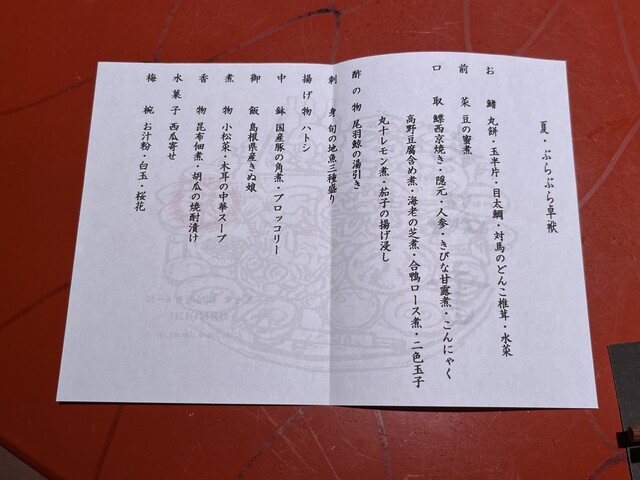 夏・ぶらぶら卓袱
お鰭 丸餅・玉半片・目太鯛・対馬のどんこ椎茸・水菜
前菜 豆の蜜煮
口取 鰈西京焼き・隠元・人参・きびな甘露煮・こんにゃく
高野豆腐含め煮・海老の芝煮・合鴨ロース煮・二色玉子
丸十レモン煮・茄子の揚げ浸し
酢の物 尾羽鯨の湯引き
刺身 旬の地魚三種盛り
揚げ物 ハトシ
中鉢 国産豚の角煮・ブロッコリー
御飯 島根県産きぬ娘
煮物 小松菜・木耳の中華スープ
香物 昆布佃煮・胡瓜の焼酎漬け
水菓子 西瓜寄せ
梅椀 お汁粉・白玉・桜花